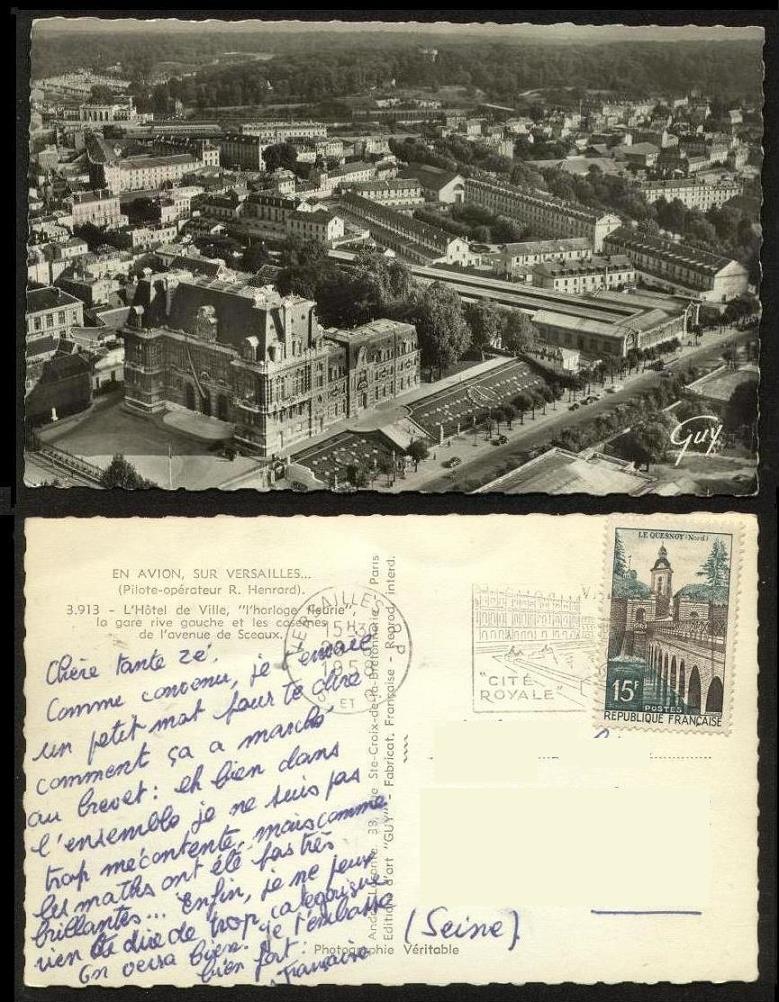 Guy
EN AVION, SUR VERSAILLES...
(Pilote-opérateur R. Henrard).
3.913 - L'Hôtel de Ville, "l'horloge fleurie",
la gare rive gauche et les casernes
de l'avenue de Sceaux.
Chère tante Zé,
Comme convenu, je t'envoie
un petit mot pour te dire
comment ça a marché
au brevet : eh bien dans
l'ensemble je ne suis pas
trop mécontente, mais comme
les maths ont été pas très
brillantes... Enfin, je ne peux
rien te dire de trop catégorique
On verra bien. Je t'embrasse
bien fort :
Françoise
Photographie Véritable
André Leconte, 38, Rue Ste-Croix-de-la-Bretonnerie, Paris
Editions d'art "GUY" - Fabricat. Française - Reprod. interd.
VERSAILLES
15H
1958
ET
"CITÉ
ROYALE"
LE QUESNOY (Nord)
15F
POSTES
REPUBLIQUE FRANÇAISE
(Seine).